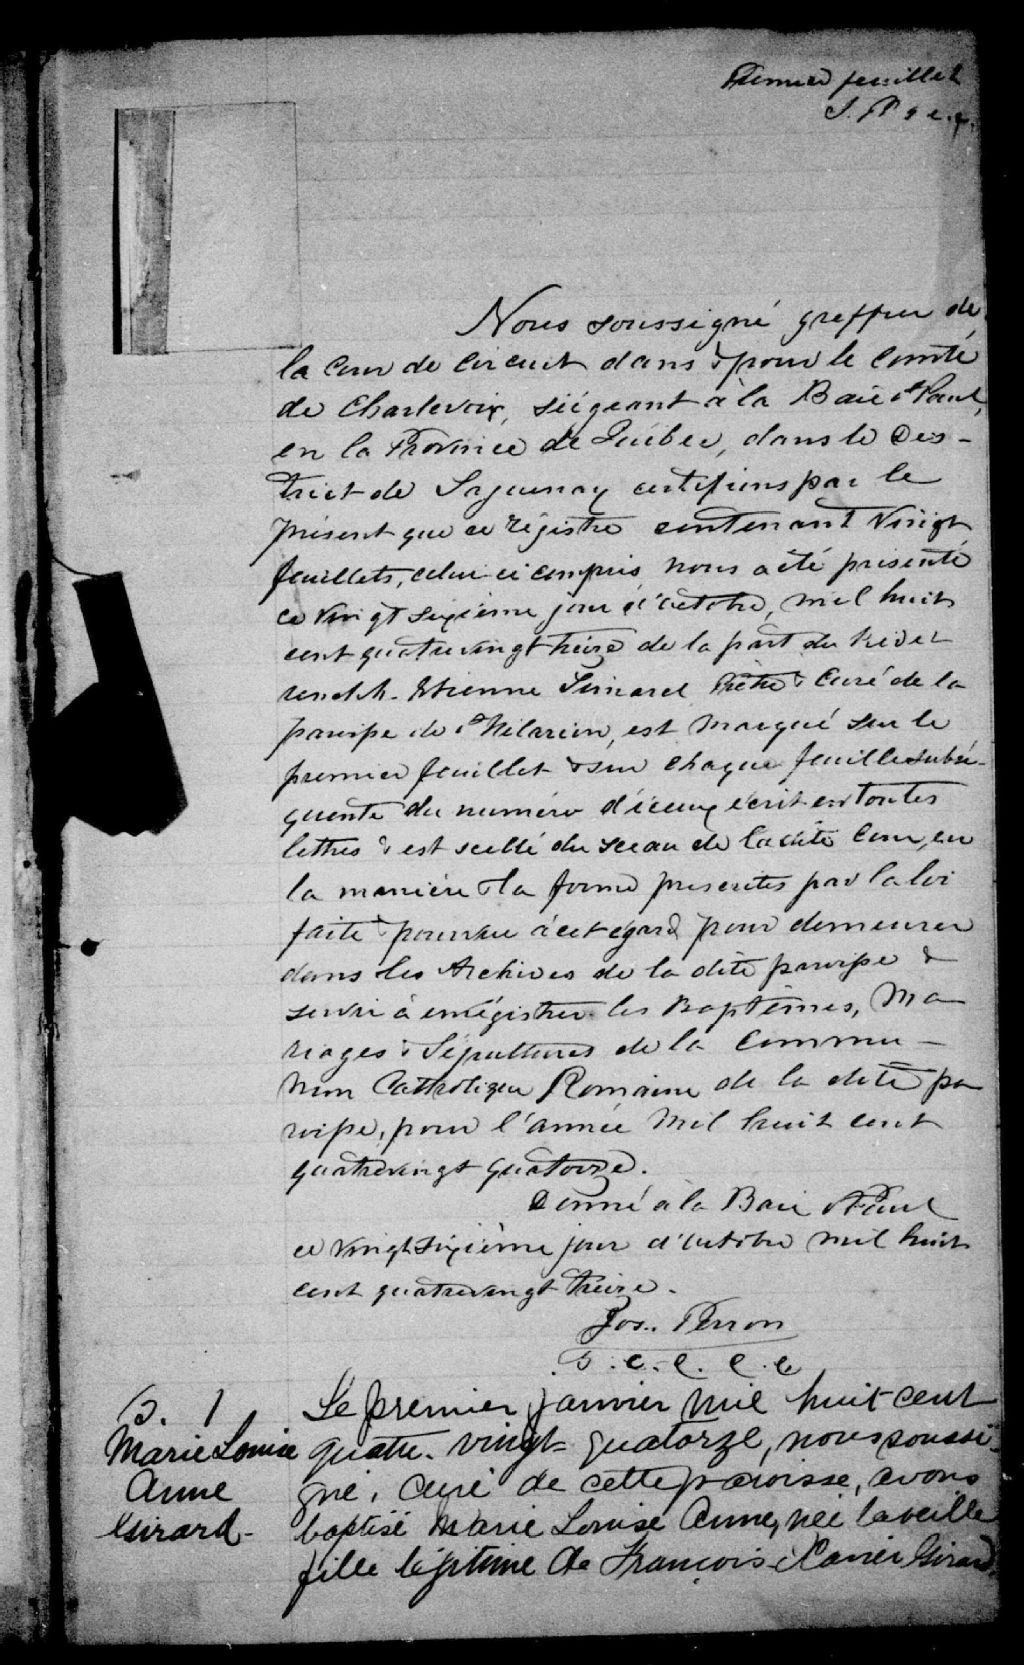 Premier feuillet
J. P. g. c. c.
Nous soussigné greffier de
la Cour de Circuit dans & pour le comté
de Charlevoix, siégeant à la Baie St Paul,
en la Province de Québec, dans le Dis-
trict de Saguenay certifions par le
présent que ce régistre contenant Vingt
feuillets, celui-ci compris nous a été présenté
ce vingt sixième jour d'octobre, mil huit
cent quatrevingt treize de la part du Révé-
rend M. Etienne Simard Prêtre & Curé de la
paroisse de St Hilarion, est marqué sur le
premier feuillet & sur chaque feuille subsé-
quente du numéro d'iceux écrit en toutes
lettres & est scellé du sceau de la dite Cour, en
la manière & la forme prescrites par la loi
faite & pourvue à cet égard pour demeurer
dans les Archives de la dite paroisse &
servir à enrégistrer les Baptêmes, Ma-
riages & Sépultures de la Commu-
nion Catholique Romaine de la dite pa
roisse, pour l'année Mil huit cent
quatrevingt quatorze.
Donné à la Baie St Paul
ce vingt sixième jour d'octobre mil huit
cent quatrevingt treize.
Jos. Perron
G. C. C. C. C.
B. 1
Marie Louise
Anne
Girard-
Le premier janvier mil huit cent
quatre-vingt-quatorze, nous soussi-
gné, curé de cette paroisse, avons
baptisé Marie Louise Anne, née la veille
fille légitime de François Xavier Girard,